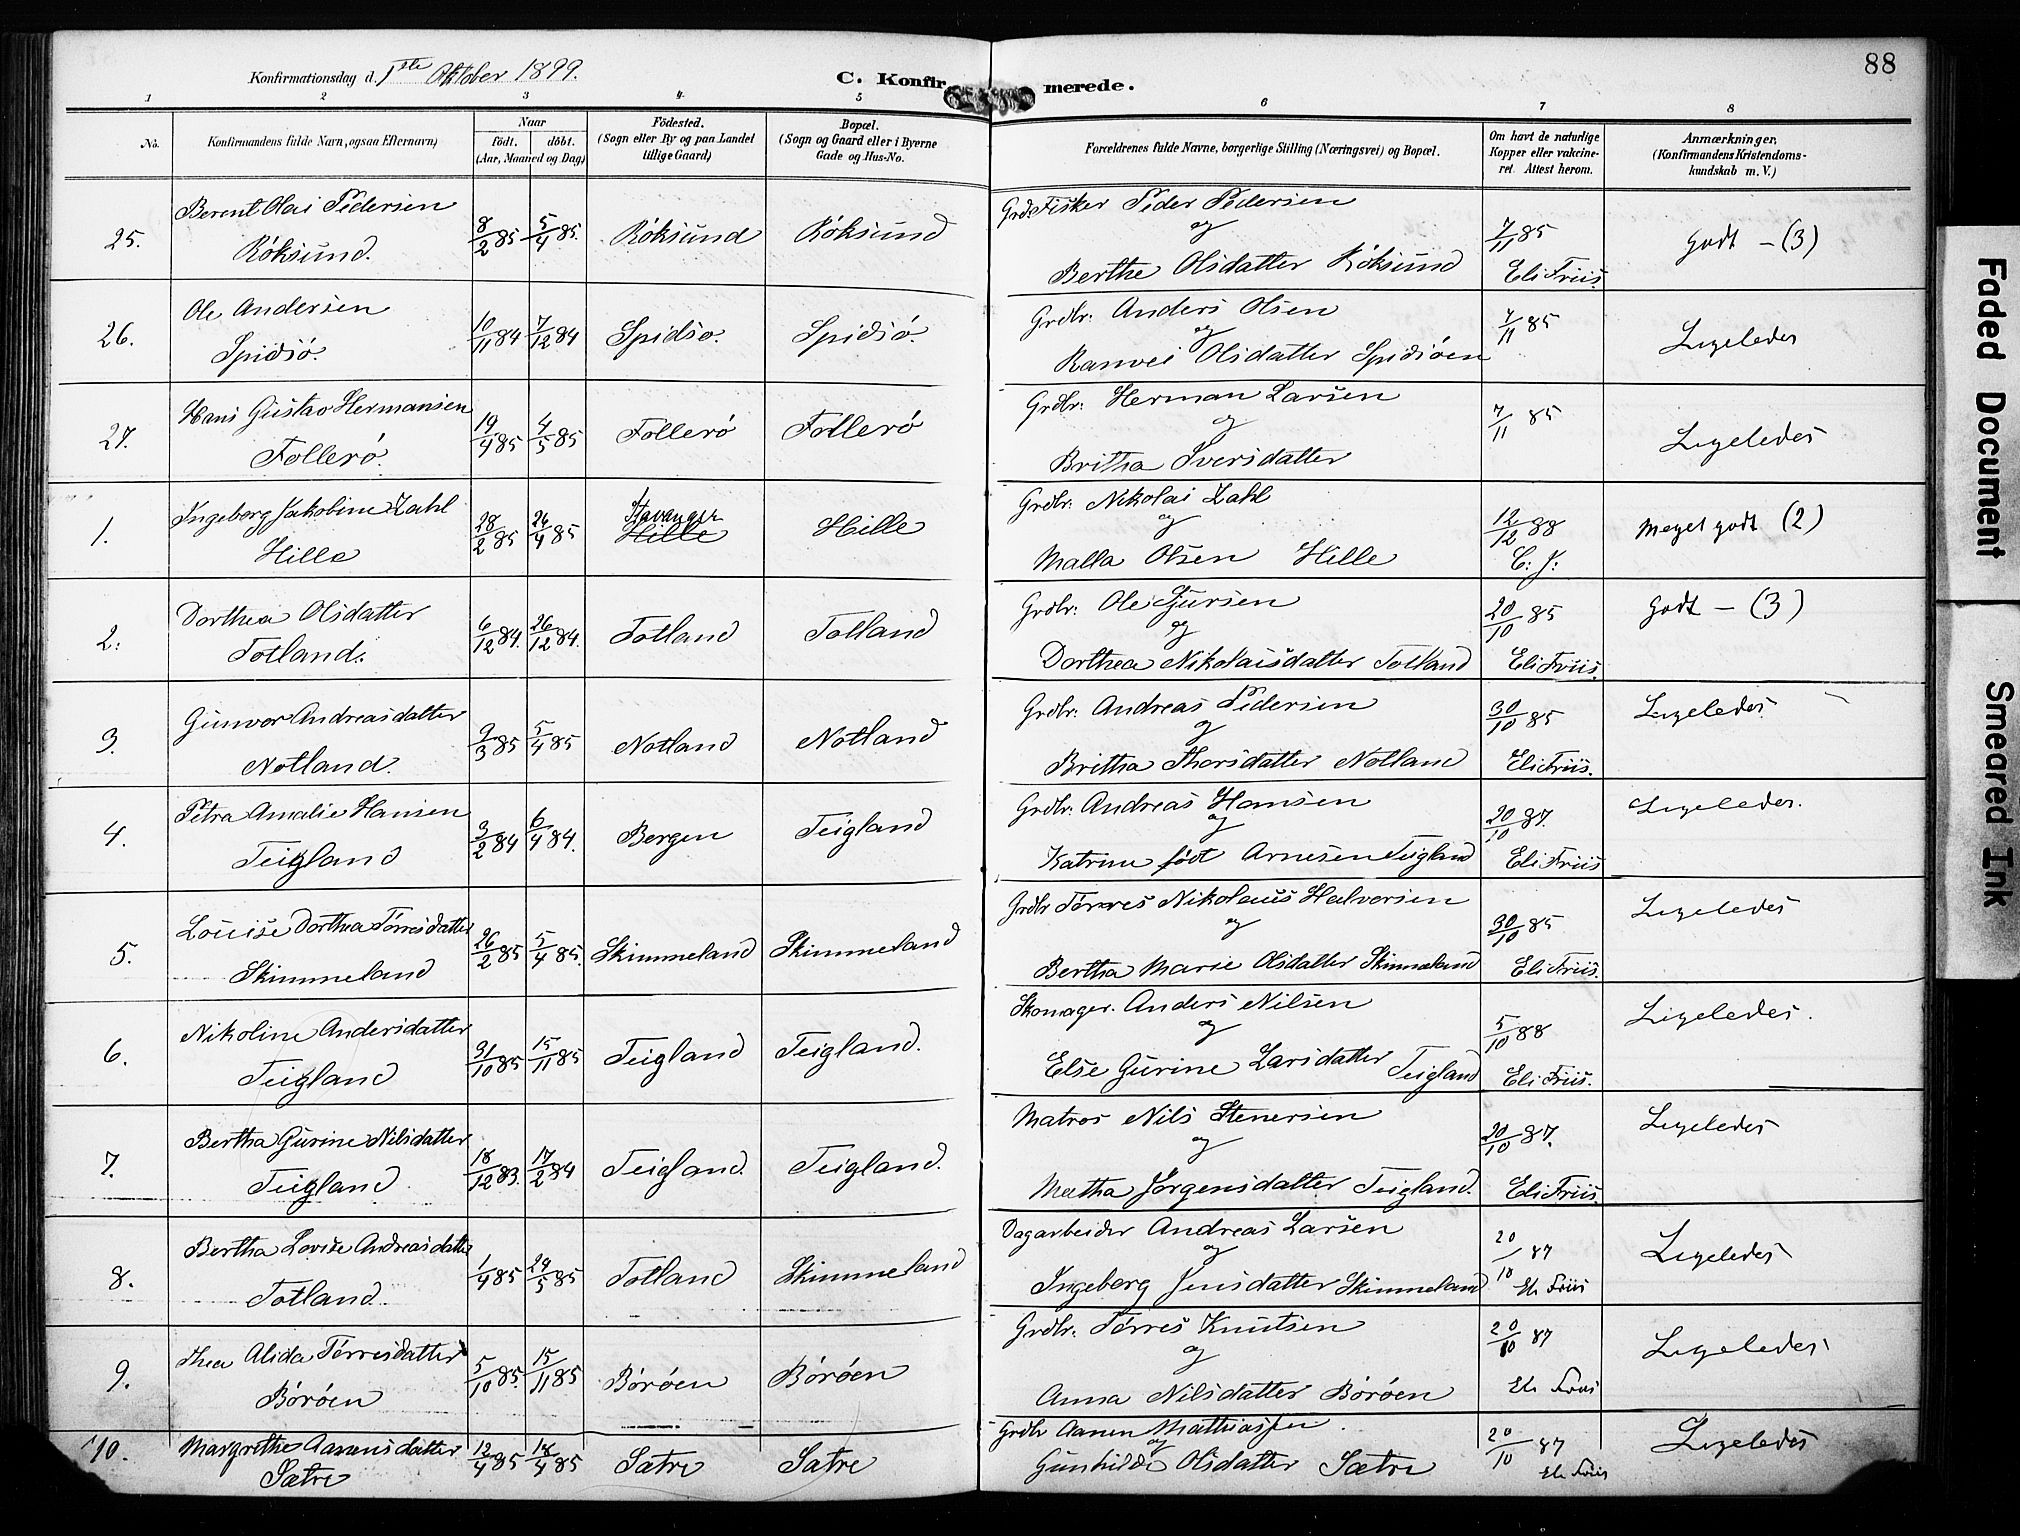 88
Konfirmationsdag d. 1ste Oktober 1899.
C. Konfirmerede.
1 2 3 4 5 6 7 8
No.
Konfirmandens fulde Navn, ogsaa Efternavn)
Naar
födt. döbt.
(Aar, Maaned og Dag)
Födested.
(Sogn eller By og paa Landet
tillige Gaard)
Bopæl.
(Sogn og Gaard eller i Byerne
Gade og Hus-No.
Forældrenes fulde Navne, borgerlige Stilling (Næringsvei) og Bopæl.
Om havt de naturlige
Kopper eller vakcine-
ret. Attest herom.
Anmærkninger,
(Konfirmandens Kristendoms-
kundskab m. V.)
25. Berent Olai Pedersen Røksund. 8/2 85 5/4 85. Røksund Røksund
Grdb. Fisker Peder Pedersen
og
Berthe Olsdatter Røksund
7/11 85 Eli Friis.
Godt – (3)
26. Ole Andersen Spidsø. 10/11 84 7/12 84 Spidsø. Spidsø.
Grdbr. Anders Olsen
og
Ranvei Olsdatter Spidsøen
7/11 85
Ligeledes
27. Hans Gustav Hermansen Follerø. 19/4 85 4/5 85 Follerø Follerø
Grdbr: Herman Larsen
og
Britha Iversdatter
7/11 85
Ligeledes
1. Ingeborg Jakobine Zahl Hille 28/2 85 26/4 85 Stavanger Hille Hille
Grdbr: Nikolai Zahl
og
Malla Olsen Hille
12/12 88 C. J:
Meget godt (2)
2. Dorthea Olsdatter Totland. 6/12 84. 26/12 84. Totland Totland
Grdbr: Ole Gjursen
og
Dorthea Nikolaisdatter Totland
20/10 85 Eli Friis.
Godt – (3)
3. Gunvor Andreasdatter Notland. 9/3 85 5/4 85 Notland Notland
Grdbr: Andreas Pedersen
og
Britha Thorsdatter Notland
30/10 85 Eli Friis.
Ligeledes.
4. Petra Amalie Hansen Teigland 3/2 84 6/4 84. Bergen Teigland
Grdbr: Andreas Hansen
og
Katrine født Arnesen Teigland
20/10 87. Eli Friis
Ligeledes.
5. Louise Dorthea Tørresdatter Skimmeland 26/2 85 5/4 85. Skimmeland Skimmeland
Grdbr Tørres Nikolaus Halvorsen
og
Bertha Marie Olsdatter Skimmeland
30/10 85 Eli Friis.
Ligeledes
6. Nikoline Andersdatter Teigland 31/10 85 15/11 85 Teigland Teigland.
Skomager. Anders Nilsen
og
Else Gurine Larsdatter Teigland
5/10 88 Eli Friis.
Ligeledes.
7. Bertha Gurine Nilsdatter Teigland 18/12 83. 17/2 84 Teigland. Teigland.
Matros Nils Stenersen
og
Martha Jørgensdatter Teigland.
20/10 87. Eli Friis
Ligeledes
8. Bertha Lovise Andreasdatter Totland. 1/4 85 24/5 85 Totland Skimmeland
Dagarbeider Andreas Larsen
og
Ingeborg Jensdatter Skimmeland
20/10 87 Eli Friis
Ligeledes
9. Thea Alida Tørresdatter Børøen 5/10 85. 15/11 85 Børøen Børøen
Grdbr: Tørres Knutsen
og
Anna Nilsdatter Børøen
20/10 87 Eli Friis
Ligeledes
10. Margrethe Aanensdatter Sætre 12/4 85 18/4 85 Sætre Sætre
Grdbr Aanen Mathiassen.
og
Gunhilde Olsdatter Sætre
20/10 87 Eli Friis
Ligeledes
Faded Document
Smeared Ink